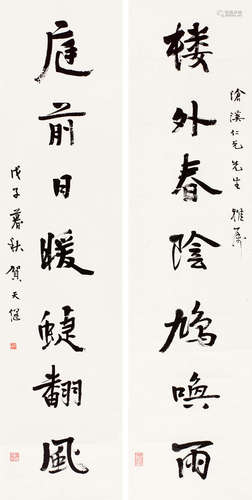 滄溟仁兄先生雅屬
楼外春陰鳩喚雨
庭前日暖蜨翻風
戊子暮秋賀天健